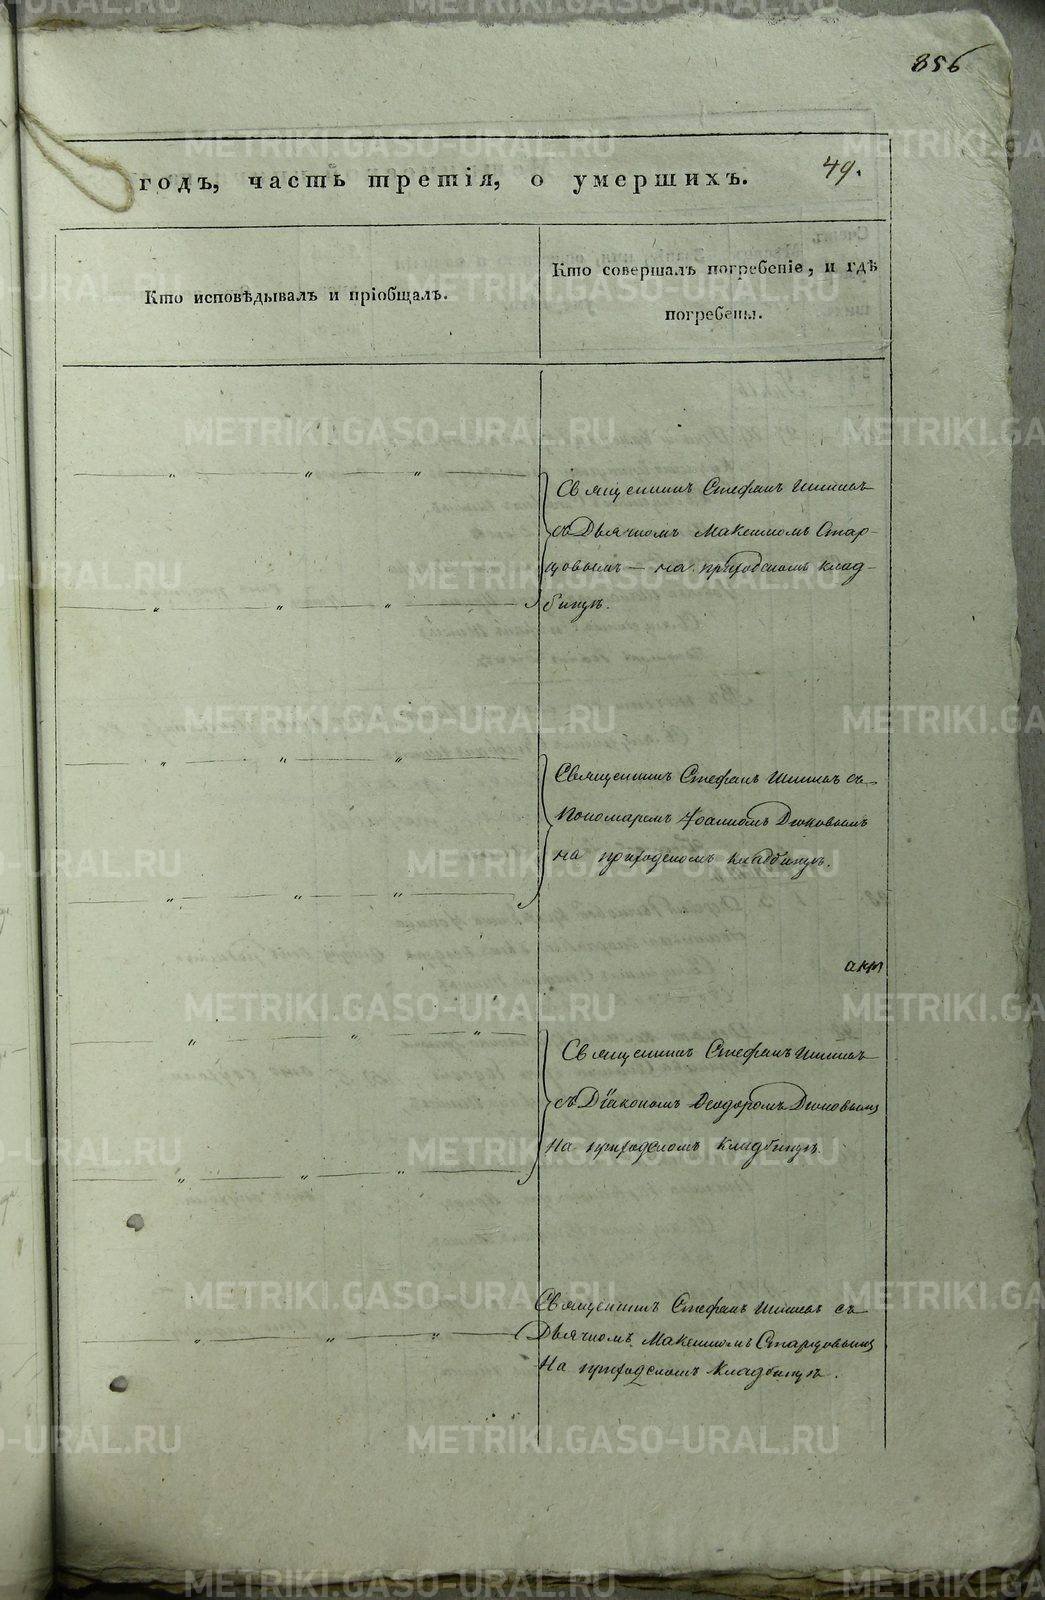 856
годъ, часть третія, о умершихъ. 49.
Кто исповѣдывалъ и пріобщалъ.
Кто совершалъ погребеніе, и гдѣ
погребены.
Священникъ Стефанъ
съ Дьячкомъ Максимомъ Стар-
цовымъ — на приходскомъ клад-
бищѣ.
Священникъ Стефанъ съ
Пономаремъ Іоанномъ
на приходскомъ кладбищѣ.
Священникъ Стефанъ
съ Діакономъ Ѳеодоромъ
на приходскомъ кладбищѣ.
Священникъ Стефанъ съ
Дьячкомъ Максимомъ Старцовымъ
На приходскомъ кладбищѣ.
METRIKI.GASO-URAL.RU